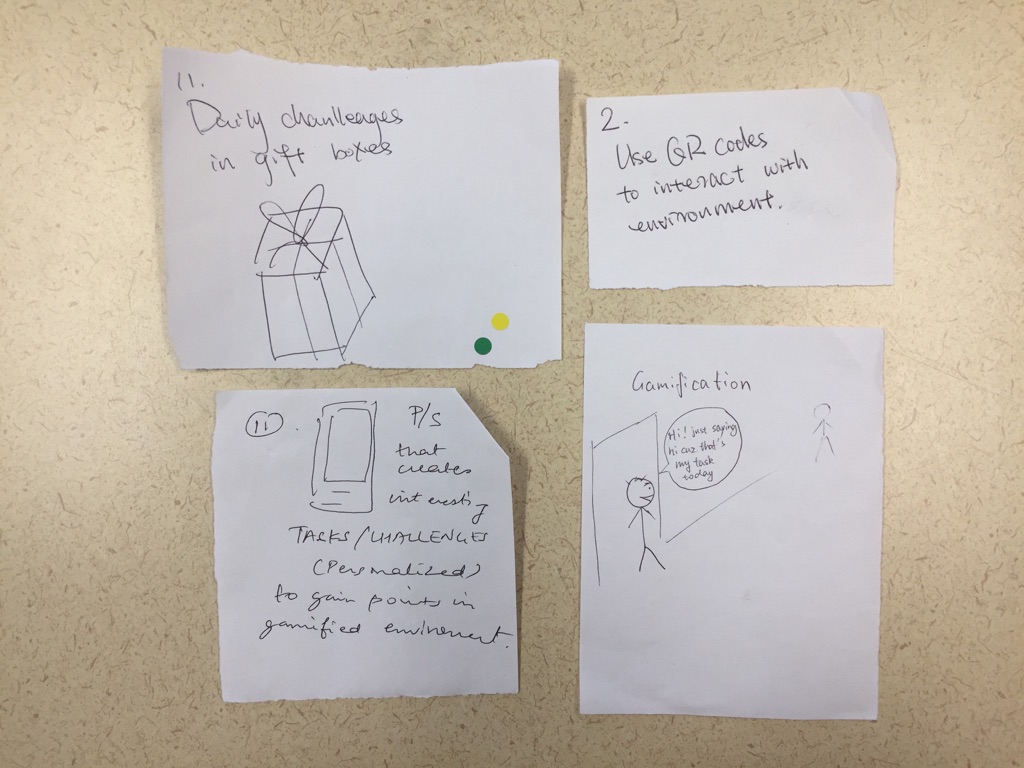 11.
Daily chanlleages
in gift boxes
2.
Use QR codes
to interact with
environment.
11.
P/S
that
creates
interesting
TASKS/CHALLENGES
(Personalized)
to gain points in
gamified enviroment.
Gamification
Hi! just saying
hi cuz that's
my task
today